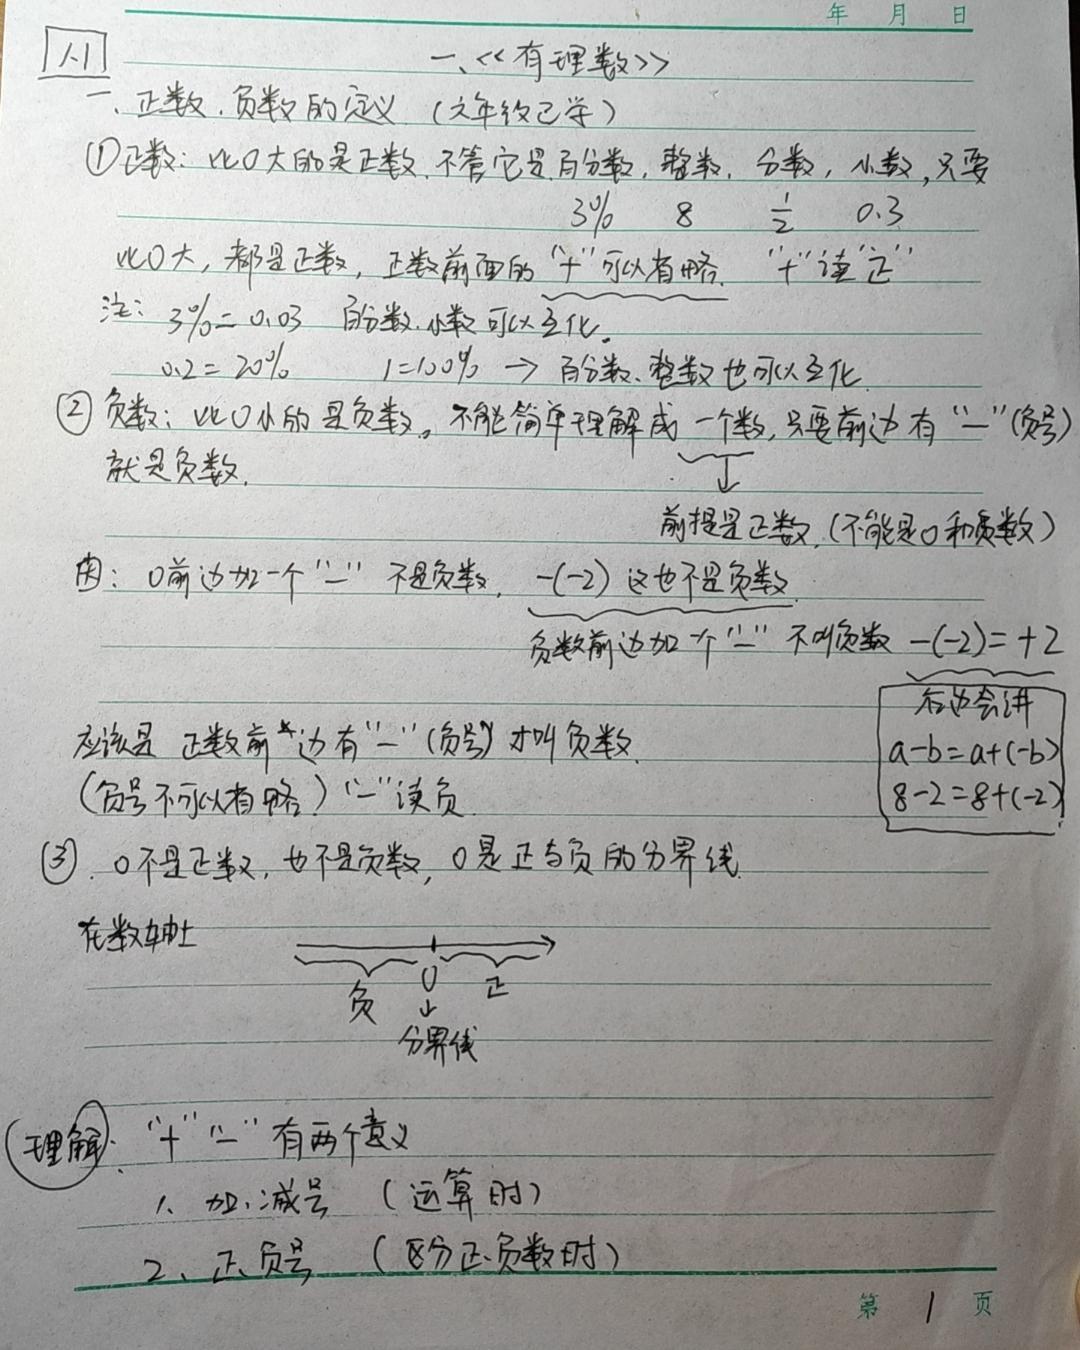 年 月 日
1.1
一、<<有理数>>
一、正数、负数的定义 (六年级已学)
①正数: 比0大的是正数,不管它是百分数,整数,分数,小数,只要
3% 8 1/2 0.3
比0大,都是正数,正数前面的“+”可以省略. “+”读“正”
注: 3%=0.03 百分数、小数可以互化。
0.2=20% 1=100% → 百分数、整数也可以互化.
②负数: 比0小的是负数。不能简单理解成一个数,只要前边有“-”(负号)
就是负数.
↓
前提是正数.(不能是0和负数)
因: 0前边加一个“-”不是负数, -(-2)这也不是负数.
负数前边加一个“-”不叫负数 -(-2)=+2
后边会讲
应该是 正数前边有“-”(负号)才叫负数.
a-b=a+(-b)
(负号不可以省略) “-”读负
8-2=8+(-2)
③. 0不是正数,也不是负数, 0是正与负的分界线.
在数轴上
负 0 正
↓
分界线
理解: “+”“-”有两个意义
1、加、减号 (运算时)
2、正、负号 (区分正、负数时)
第 1 页